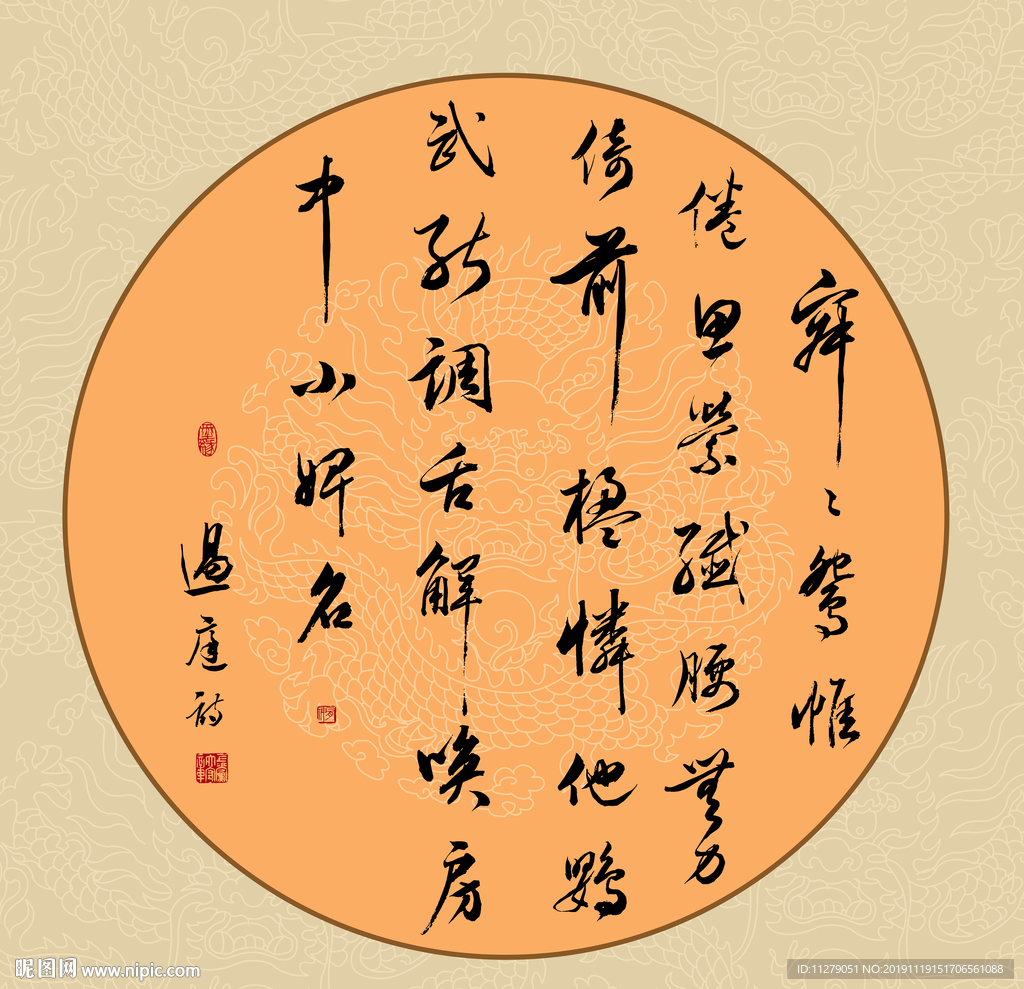 寂〻鴛帷
倦思縈纖腰無力
倚前楹憐他鸚
武能調舌解喚房
中小婢名
過庭詩
昵图网 www.nipic.com
ID:11279051 NO:20191119151706561088